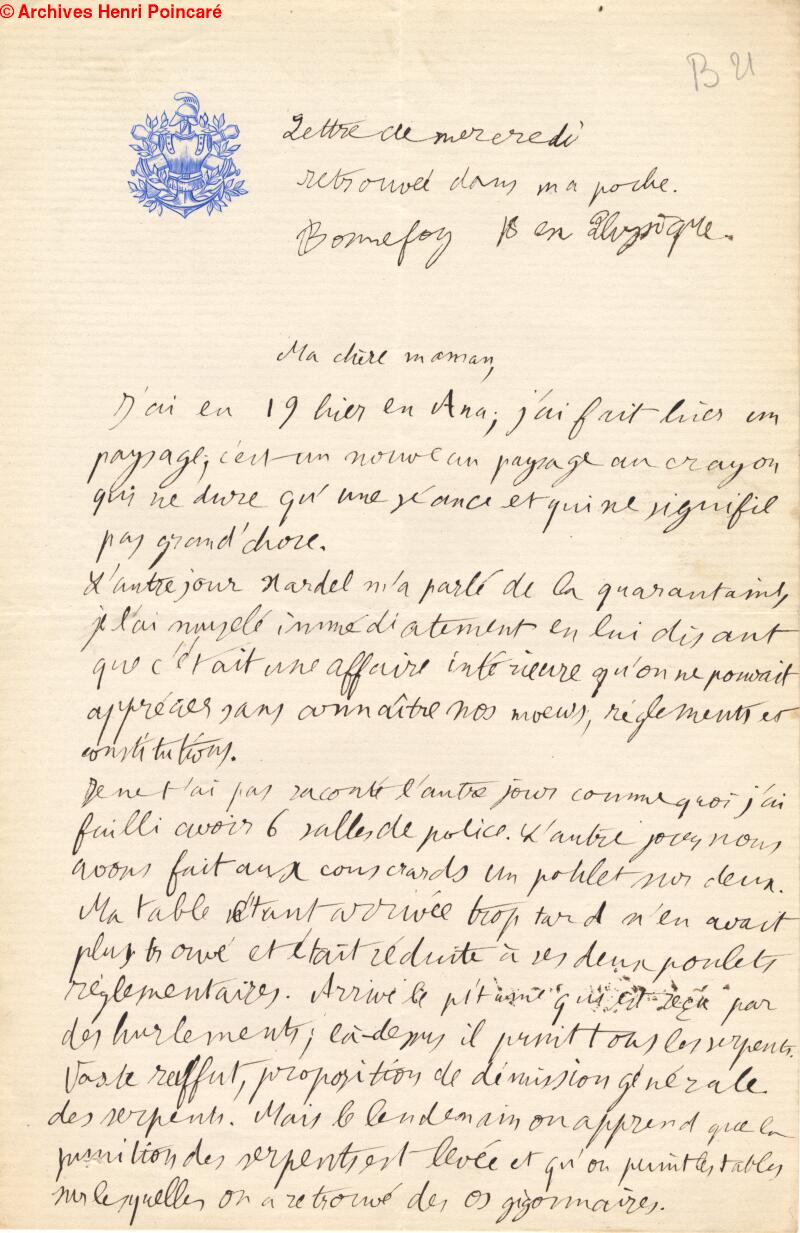 © Archives Henri Poincaré
B 21
Lettre de mercredi
retrouvée dans ma poche.
Bonnefoy 18 en Physique.
Ma chère maman,
J'ai eu 19 hier en Ana; j'ai fait hier un
paysage; c'est un nouveau paysage au crayon
qui ne dure qu'une séance et qui ne signifie
pas grand'chose.
L'autre jour Xardel m'a parlé de la quarantaine,
je l'ai muselé immédiatement en lui disant
que c'était une affaire intérieure qu'on ne pouvait
apprécier sans connaître nos moeurs, règlements et
constitutions.
Je ne t'ai pas raconté l'autre jour comme quoi j'ai
failli avoir 6 salles de police. L'autre jour nous
avons fait aux conscrards un poulet sur deux.
Ma table étant arrivée trop tard n'en avait
plus trouvé et était réduite à ses deux poulets
réglementaires. Arrive le pitaine qui est reçu par
des hurlements; là-dessus il punit tous les serpents.
Vaste raffut, proposition de démission générale
des serpents. Mais le lendemain on apprend que la
punition des serpents est levée et qu'on punit les tables
sur lesquelles on a retrouvé des os gigonnaires.